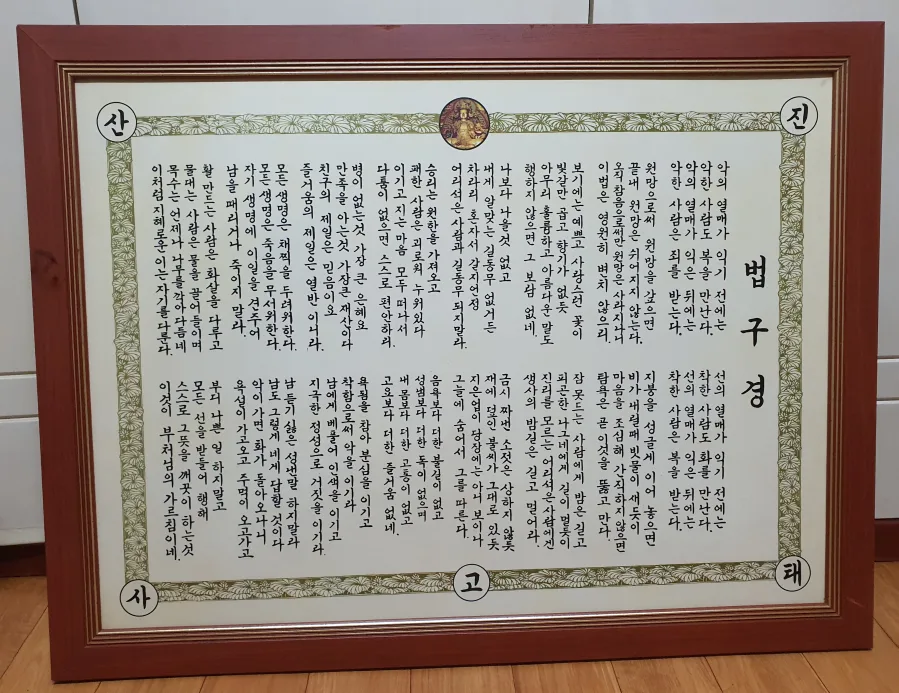 법구경
악의 열매가 익기 전에는
악한 사람도 복을 만난다.
악의 열매가 익은 뒤에는
악한 사람은 죄를 받는다.
원망으로써 원망을 갚으면
끝내 원망은 쉬어지지 않는다.
오직 참음으로써만 원망은 사라지나니
이법은 영원히 변치 않으리.
보기에는 예쁘고 사랑스런 꽃이
빛갈만 곱고 향기가 없듯
아무리 훌륭하고 아름다운 말도
행하지 않으면 그 보람 없네.
나보다 나을것 없고
내게 알맞는 길동무 없거든
차라리 혼자서 갈지언정
어리석은 사람과 길동무 되지말라.
승리는 원한을 가져오고
패한 사람은 괴로워 누워있다
이기고 지는 마음 모두 떠나서
다툼이 없으면 스스로 편안하리.
병이 없는것 가장 큰 은혜요
만족을 아는것 가장큰 재산이다
친구의 제일은 믿음이요
즐거움의 제일은 열반 이니라.
모든 생명은 채찍을 두려워한다.
모든 생명은 죽음을 무서워한다.
자기 생명에 이일을 견주어
남을 때리거나 죽이지 말라.
활 만드는 사람은 화살을 다루고
물대는 사람은 물을 끌어들이며
목수는 언제나 나무를깍아다듬네
이처럼 지혜로운 이는 자기를 다룬다.
선의 열매가 익기 전에는
착한 사람도 화를 만난다.
선의 열매가 익은 뒤에는
착한 사람은 복을 받는다.
지붕을 성글게 이어 놓으면
비가 내릴때 빗물이 새듯이
마음을 조심해 간직하지않으면
탐욕은 곧 이것을 뚫고 만다.
잠 못드는 사람에게 밤은 길고
피곤한 나그네에게 길이 멀듯이
진리를 모르는 어리석은사람에겐
생사의 밤길은 길고 멀어라.
금시 짜낸 소젖은 상하지 않듯
재에 덮인 불씨가 그대로 있듯
지은업이 당장에는 아니 보이나
그늘에 숨어서 그를 따른다.
음욕보다 더한 불길이 없고
성냄보다 더한 독이 없으며
내몸보다 더한 고통이 없고
고요보다 더한 즐거움 없네.
욕됨을 참아 분심을 이기고
착함으로써 악을 이기라
남에게 베풀어 인색을 이기고
지극한 정성으로 거짓을 이기라.
남 듣기 싫은 성낸말 하지말라
남도 그렇게 네게 답할 것이다
악이 가면 화가 돌아 오나니
욕설이 가고오고 주먹이 오고가고
부디 나쁜 일 하지말고
모든 선을 받들어 행해
스스로 그뜻을 깨끗이 하는것
이것이 부처님의 가르침이네.
진
산
태
고
사